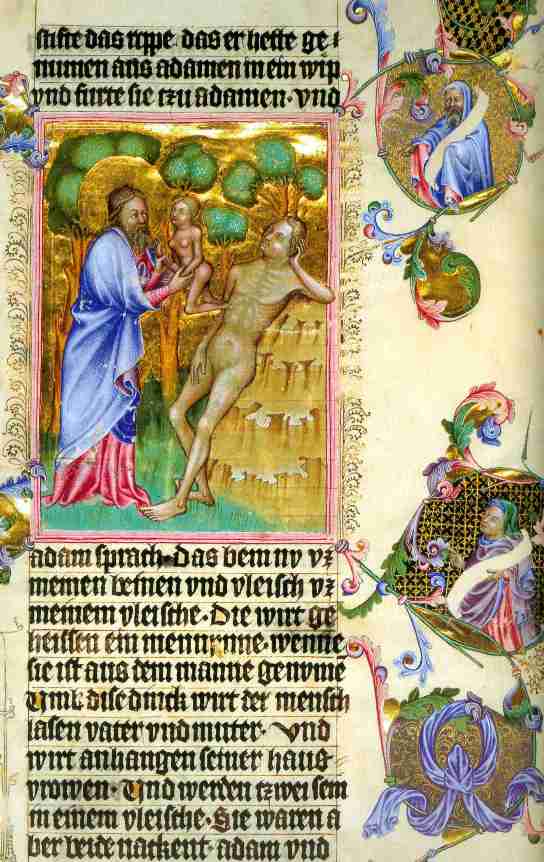 stifte das ryppe das er hette ge-
numen aus adamen in ein wip
vnd furte sie tzu adamen. vnd
adam sprach. das bein nv vz
meinen beinen vnd vleisch vz
meinem vleische. Die wirt ge
heissen ein mennynne. wenne
sie ist aus dem manne genvme
Umb dise dinck wirt der mensch
lasen vater vnd mutter. Vnd
wirt anhangen seiner haus
vrowen. Und werden tzwei sein
in einem vleische. Sie waren a
ber beide nackent adam vnd